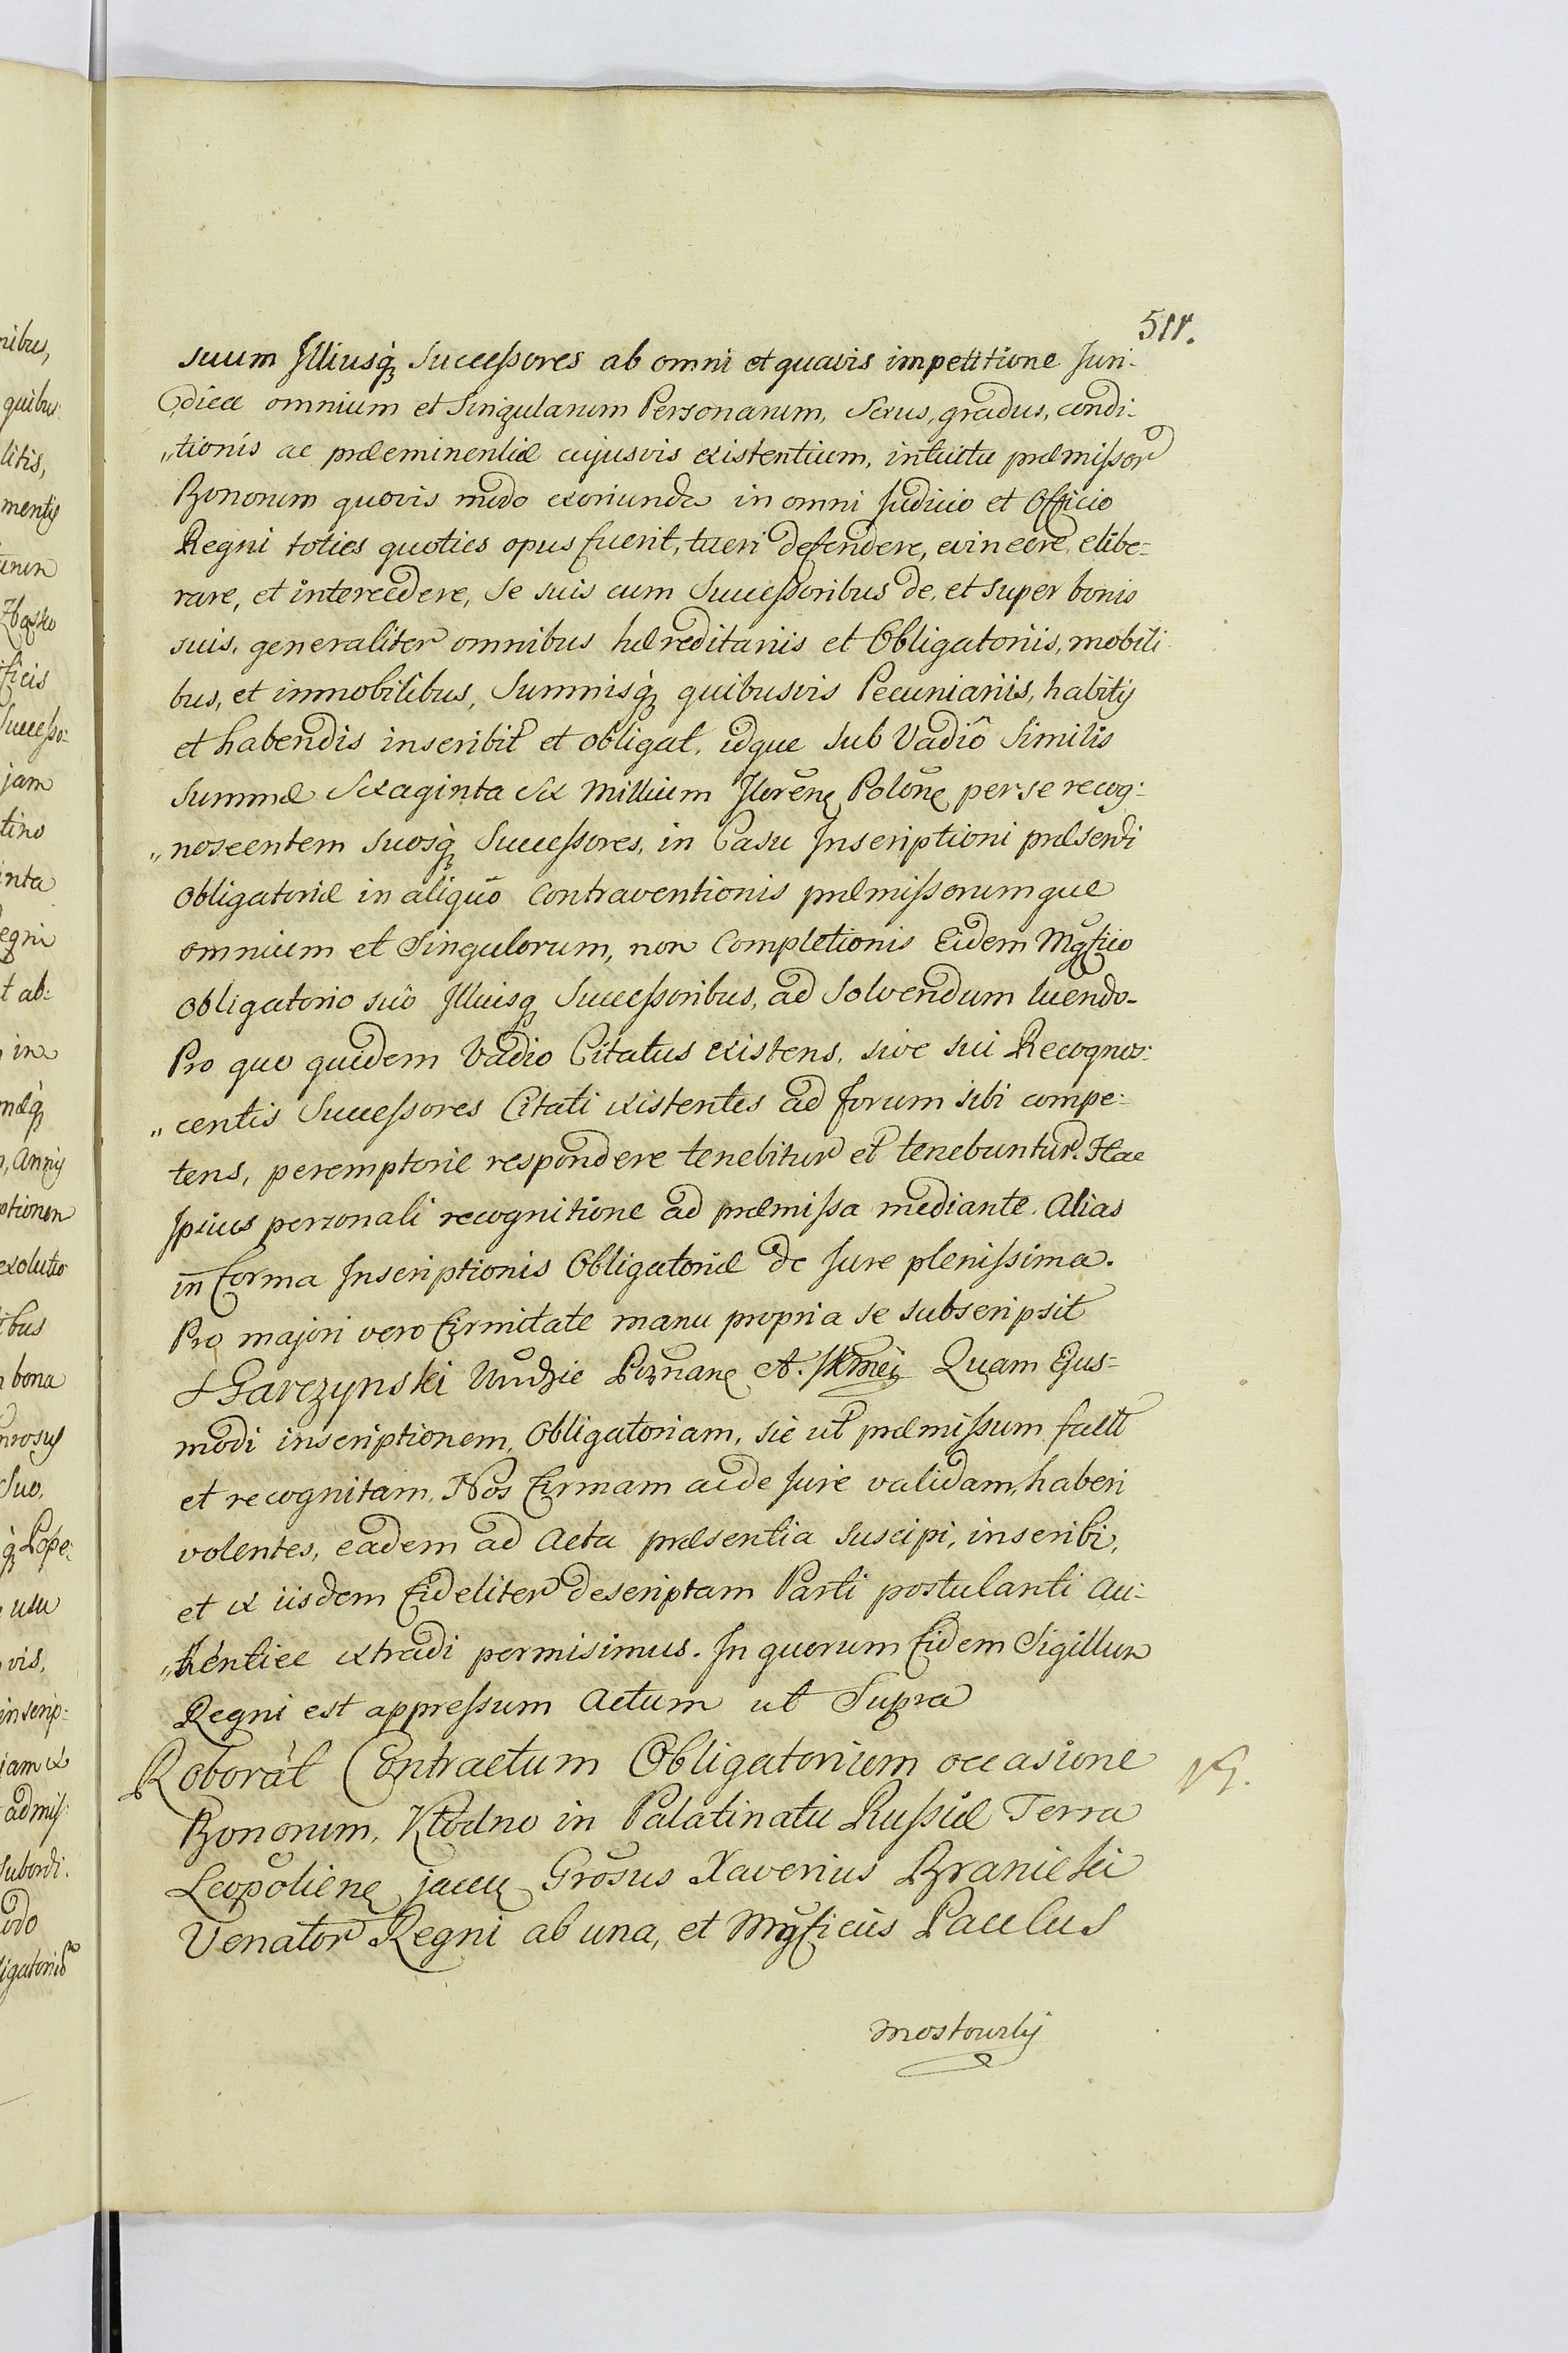 514.
suum Illiusq; Successores ab omni et quavis impetitione Juri-
dicæ omnium et Singularum Personarum, Sexus, gradus, condi-
„tionis ac præeminentiæ cujusvis existentium, intuitu præmissor
Bonorum quovis modo exoriunda in omni Judicio et Officio
Regni toties quoties opus fuerit, tueri defendere, evincere, elibe-
rare, et intercedere, se suis cum Successoribus de, et super bonis
suis, generaliter omnibus hæreditariis et Obligatoriis, mobili
bus, et immobilibus, Summisq; quibusvis Pecuniariis, habitis
et habendis inscribit et obligat, idque sub Vadiô Similis
Summæ Sexaginta Sex Millium Floren Polon per se recog-
„noscentem Suosq; Successores, in Casu Inscriptioni præsenti
Obligatoriæ in aliquo Contraventionis præmissorumque
omnium et Singulorum, non Completionis Eidem Mgfico
Obligatorio suo Illiusq; Successoribus, ad Solvendum luendo-
Pro quo quidem Vadio Citatus existens, sive sui Recognos-
„centis Successores Citati existentes ad forum sibi compe-
tens, peremptorie respondere tenebitur et tenebuntur. Hac
Ipsius personali recognitione ad præmissa mediante. Alias
in forma Inscriptionis Obligatoriæ de Jure plenissima.
Pro majori vero firmitate manu propria se subscripsit
Garczynski Poznan Quam Ejus-
modi inscriptionem, Obligatoriam, sic ut præmissum factt
et recognitam, Nos firmam ac de Jure validam, haberi
volentes, eadem ad Acta præsentia suscipi, inscribi,
et ex iisdem fideliter descriptam Parti postulanti Au-
„thentice extradi permisimus. In quorum fidem Sigillum
Regni est appressum Actum ut Supra
Roborat Contractum Obligatorium occasione
Bonorum, Kłodno in Palatinatu Russiæ Terra
Leopolien jacen Grosus Xaverius Branicki
Venator Regni ab una, et Mgficus Paulus
Mostowsky